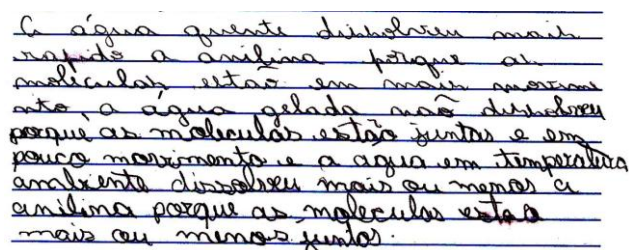 A água quente dissolveu mais
rapido a anilina porque as
moléculas estaõ em mais movime
nto a água gelada naõ dissolveu
porque as moleculas estão juntas e em
pouco movimento e a agua em temperatura
ambiente dissolveu mais ou menos a
anilina porque as moleculas estao
mais ou menos juntas.